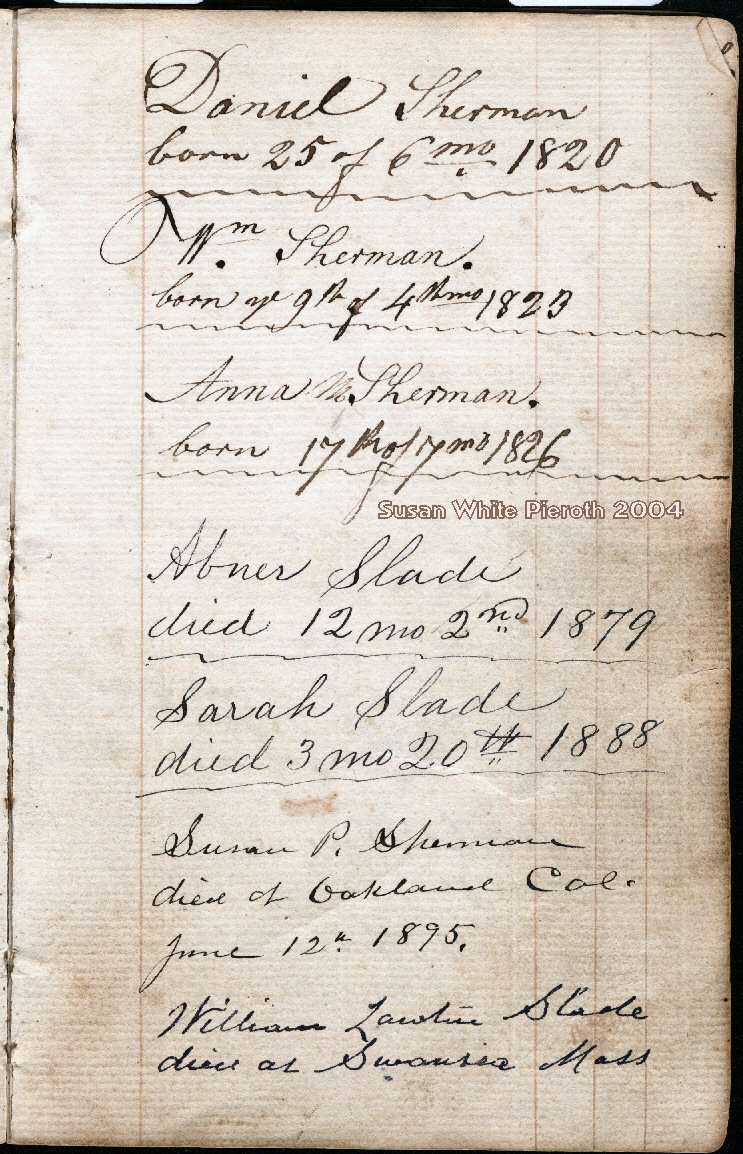 Daniel Sherman
born 25 of 6 mo 1820
Wm Sherman.
born ye 9th of 4th mo 1823
Anna M. Sherman.
born 17th of 7 mo 1826
Susan White Pieroth 2004
Abner Slade
died 12 mo 2nd 1879
Sarah Slade
died 3 mo 20th 1888
Susan P. Sherman
died at Oakland Cal.
June 12th 1895.
William Lawton Slade
died at Swansea Mass